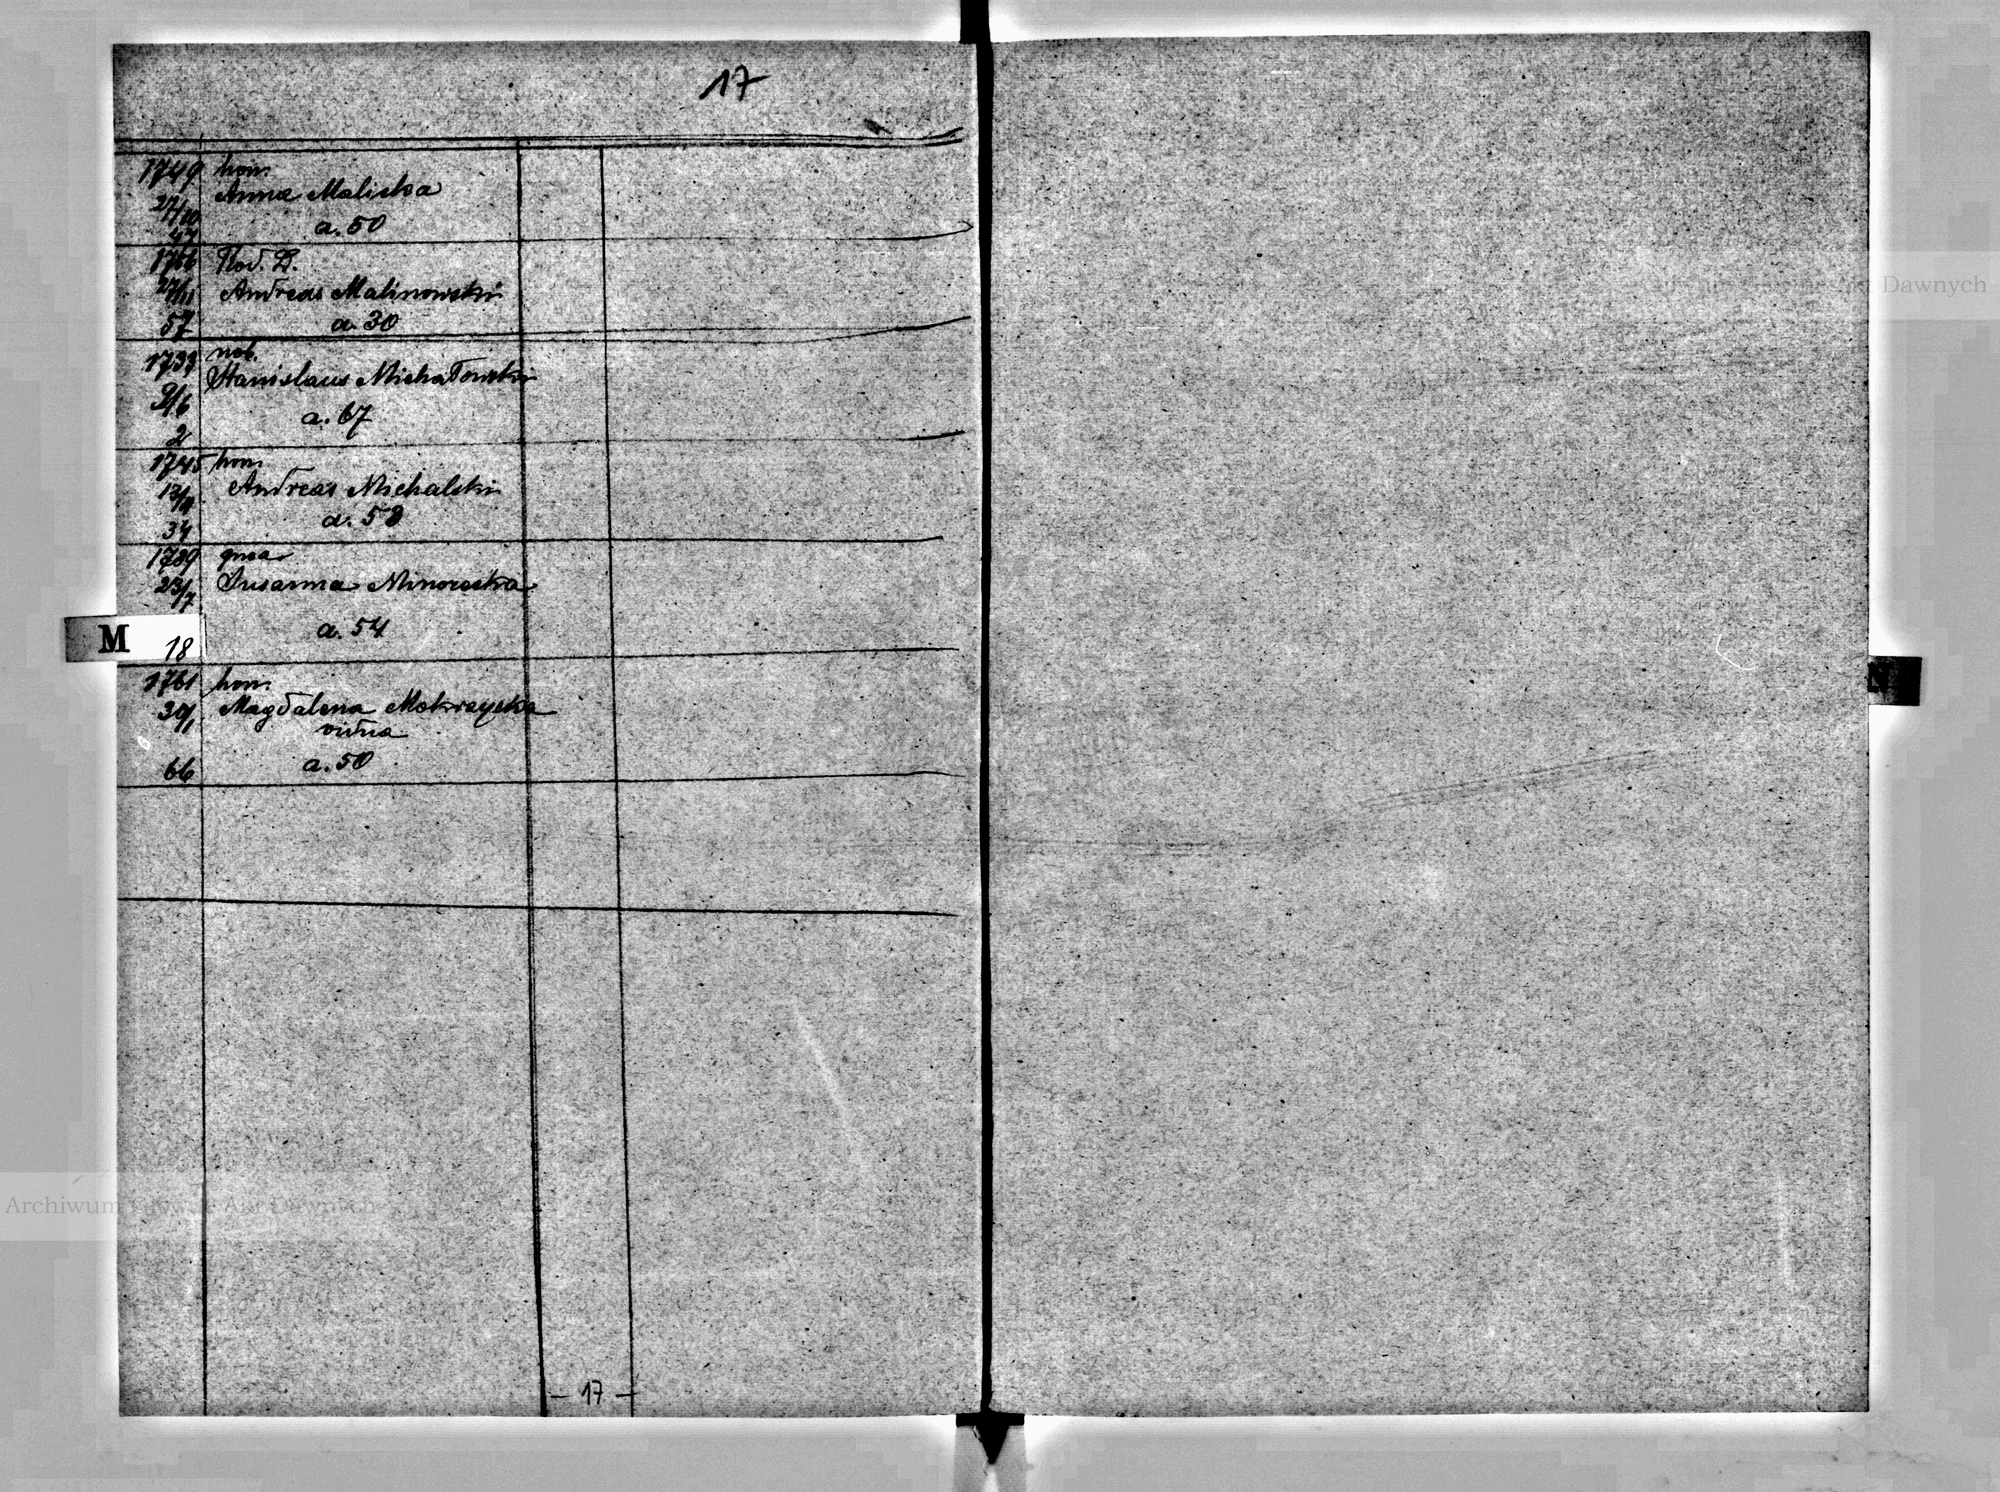 17
1749 hon.
Anna Maliska
27/10
47 a. 50
1766
27/11 Andreas Malinowski
57 a. 30
1733 nob.
Stanislaus Michałowski
9/6 a. 67
2
1745 hon.
Andreas Michalski
13/11 a. 58
34
1789
23/7 Susanna
a. 54
M 18
1761 hon.
30/1 Magdalena Mokrzycka
vidua
66 a. 50
N
- 17 -
Archiwum Główne Akt Dawnych
Archiwum Główne Akt Dawnych